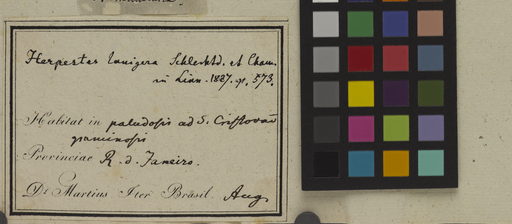 Herpestes lanigera Schlechtd. et Cham.
in Linn. 1827. p. 573.
Habitat in paludosis ad S. Cristovaõ
graminosis
Provinciae R. d. Janeiro.
Dr Martius Iter Brasil. Aug.